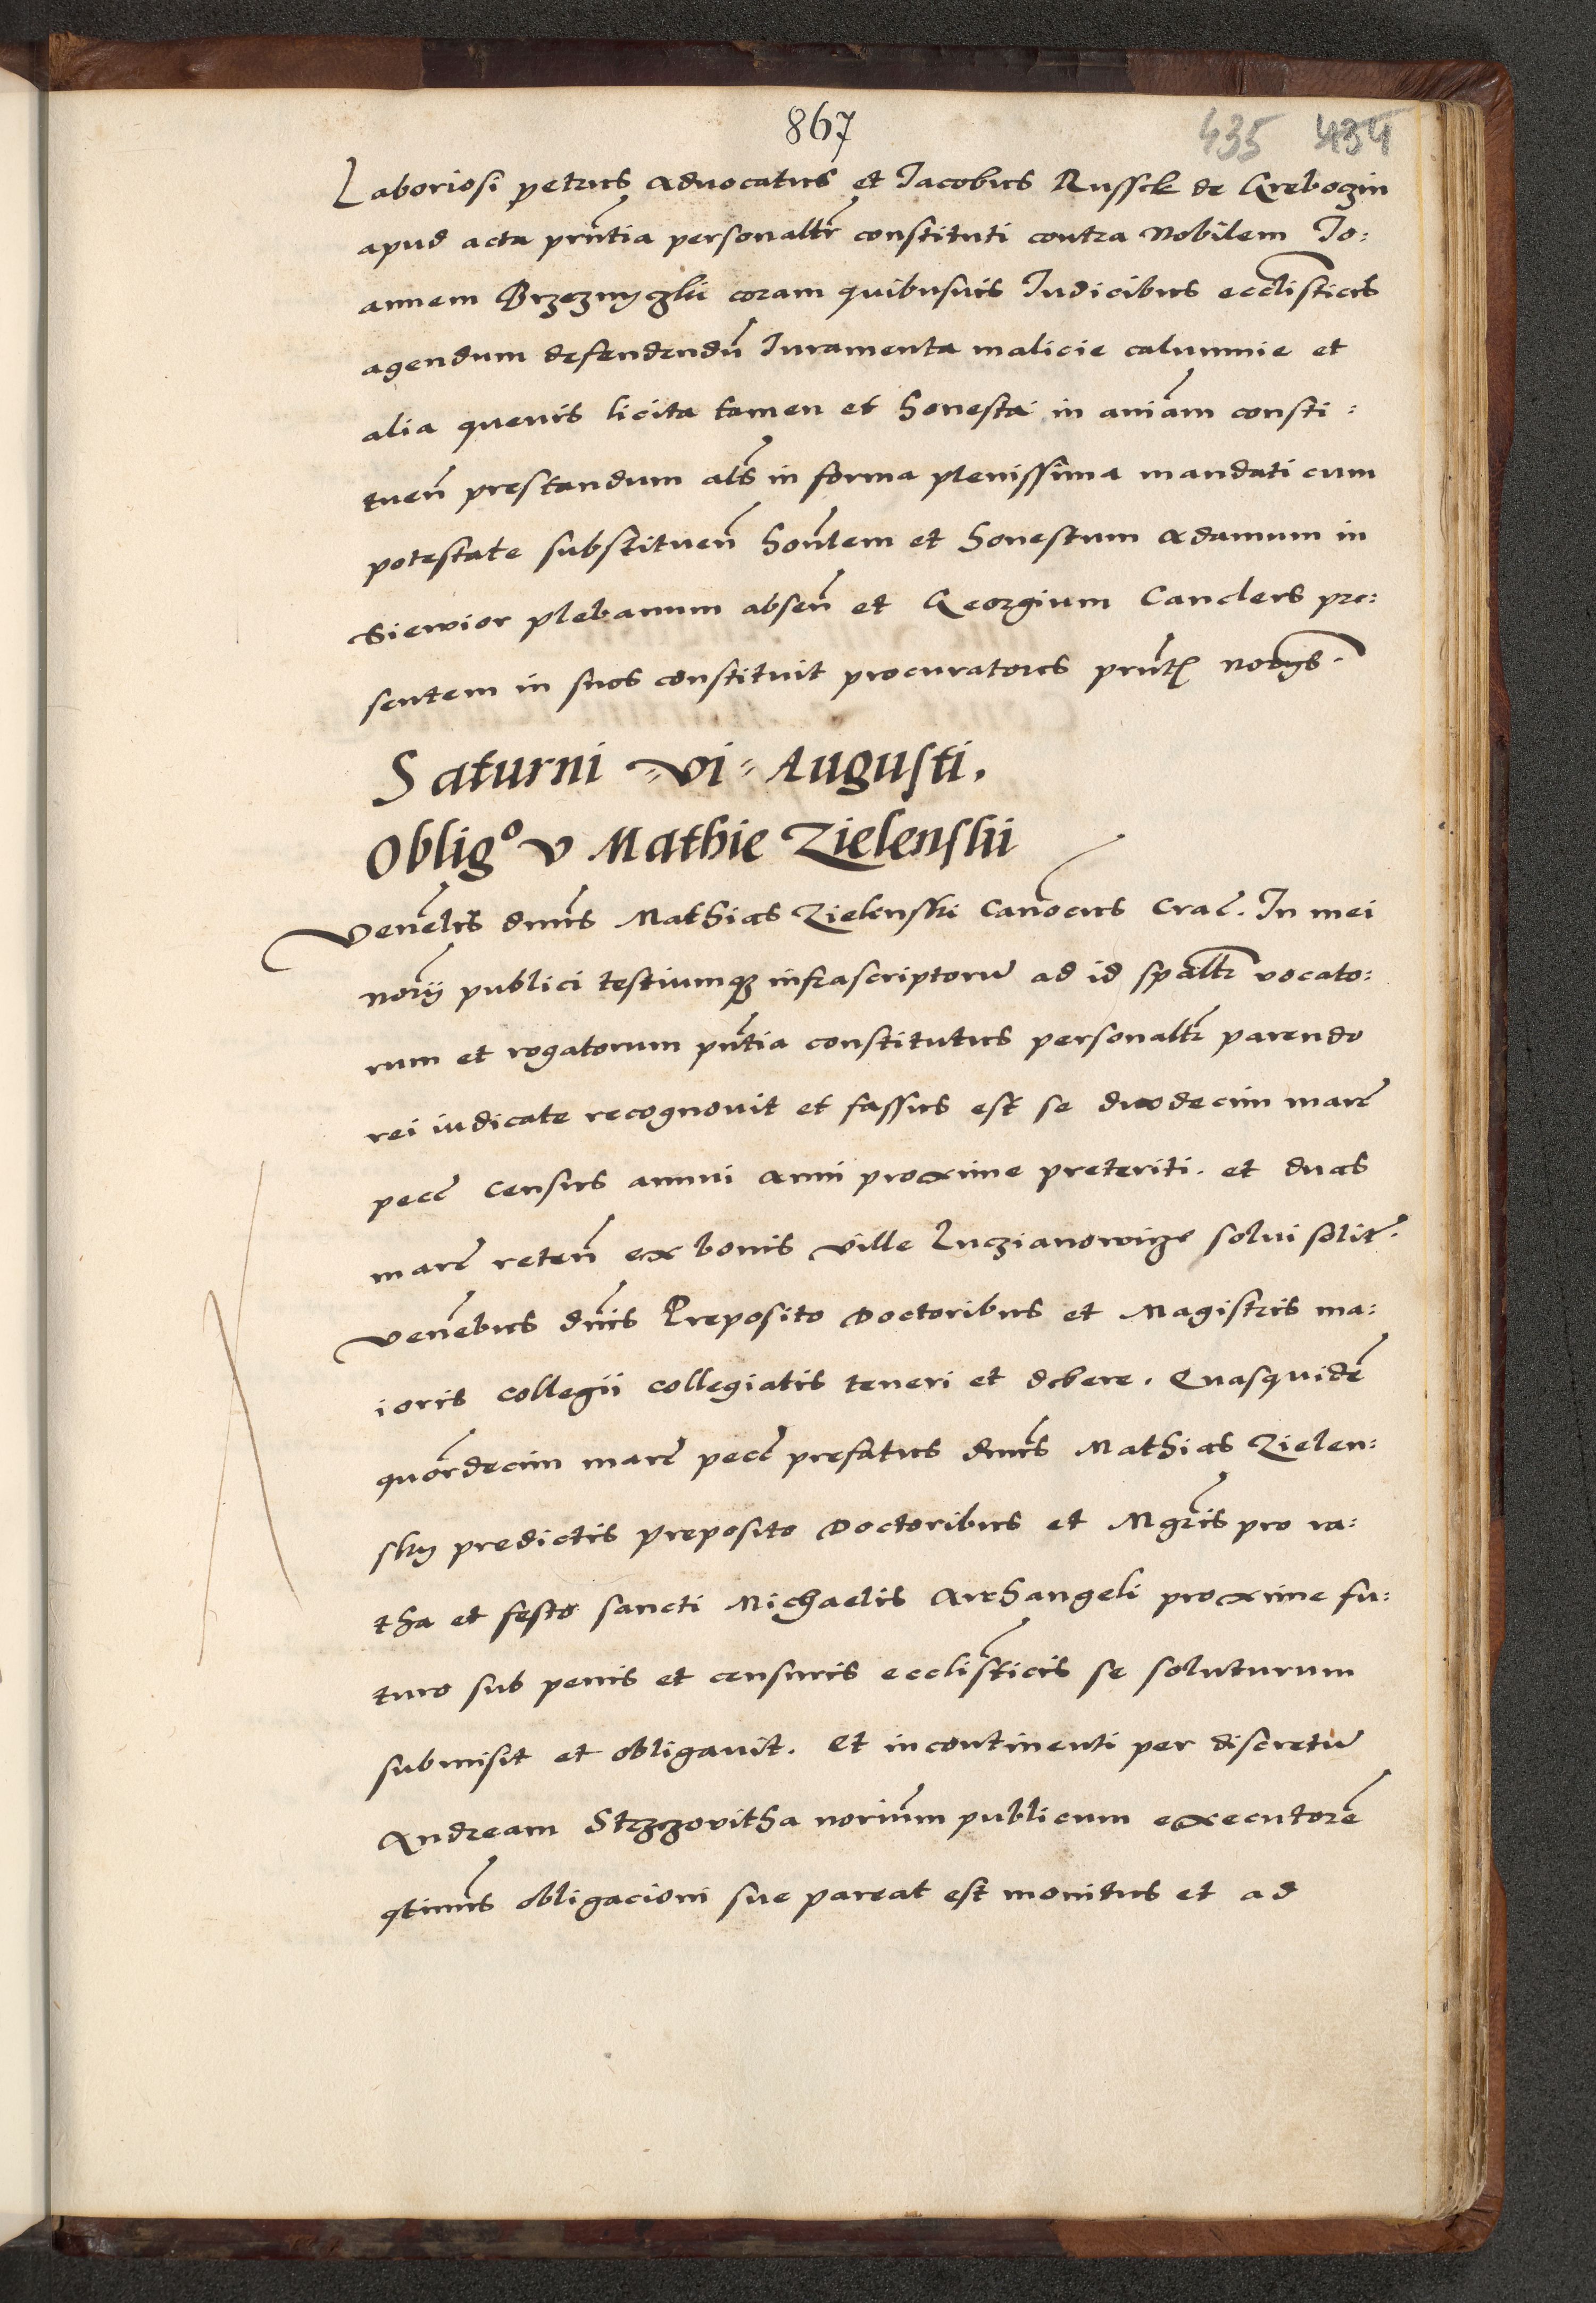 867
435 434
Laboriosi petrus advocatus et Iacobus Russek de Grebozin
apud acta prn̄tia personalr̄ constituti contra Nobilem Jo:
annem Brzeznyczki coram quibusuis Iudicibus ecclīsticis
agendum defendendū Iuramenta malicie calumnie et
alia quevis licita tamen et honesta in aniām consti:
tuen̄ prestandum als̄ in forma plenissima mandati cum
potestate substituen̄ hon̄lem et honestum Adamum in
Siewior plebanum absen̄ et Georgium Canclers pre:
sentem in suos constituit procuratores prn̄t
Saturni vi Augusti.
Obligº v Mathie Zielenskii
Venelīs dnūs Mathias Zielenski Canōcus Crac̄. In mei
norīj publici testiumqȝ infrascriptorū ad id spaltr̄ vocato:
rum et rogatorum pn̄tia constitutus personaltr̄ parendo
rei iudicate recognovit et fassus est se duodecim marc̄
pecc̄ census annui anni proxime preteriti. et duas
marc̄ reten̄ ex bonis ville Luczianowize solui solit̄.
venēbus dnīs Preposito Doctoribus et Magistris ma:
ioris collegii collegiatis teneri et debere. Quasquidē
quor̄decim marc̄ pecc̄ prefatus dnūs Mathias Zielen:
sky predictis preposito Doctoribus et Mgrīs pro ra:
tha et festo sancti Michaelis Archangeli proxime fu:
turo sub penis et censuris ecclīsticis se soluturum
submisit et obligavit. et incontinenti per discretū
Andream Strzzovitha noriūm publicum executorē
qtinūs obligacioni sue pareat est monitus et ad